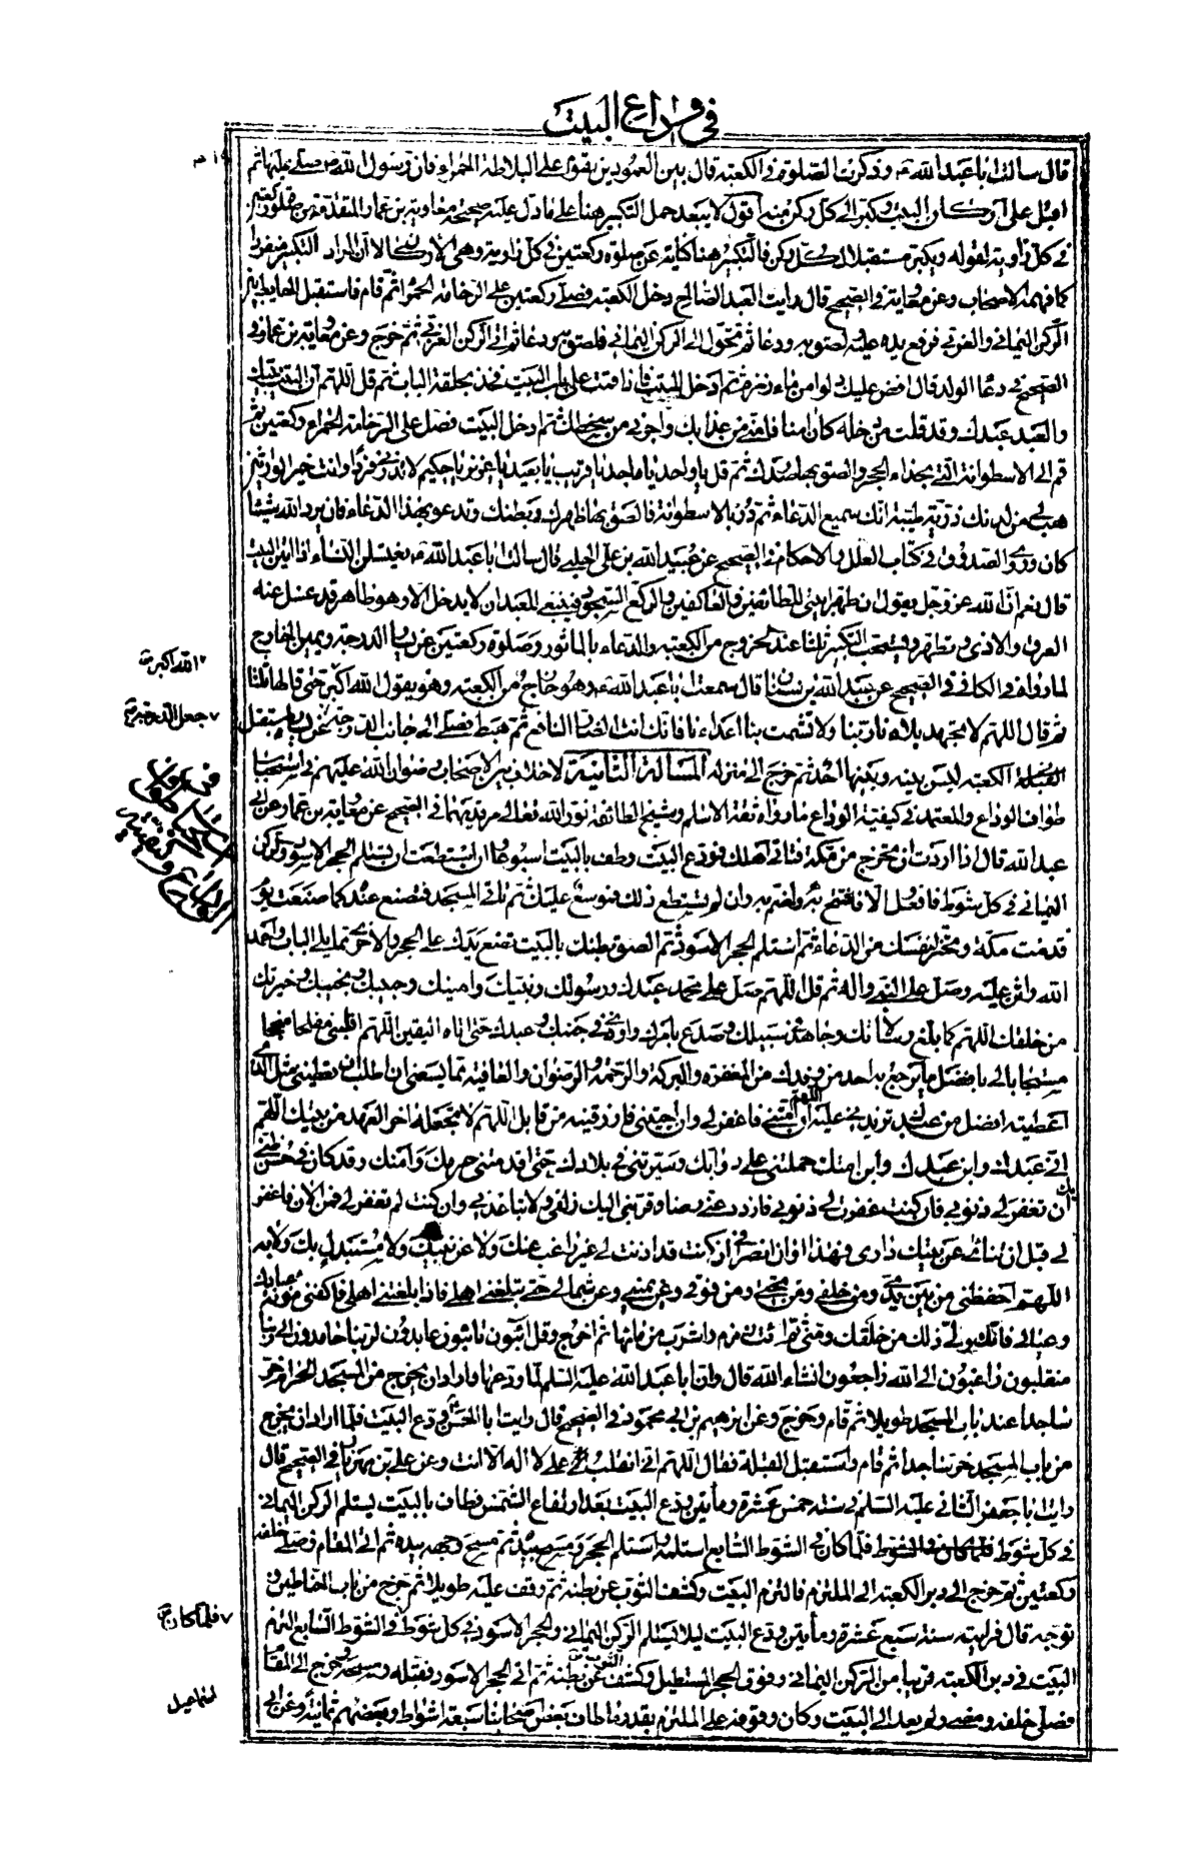 في وداع البيت
قال سالت ابا عبد الله ع وذكرت الصلوة في الكعبة قال بين العمودين يقوم على البلاطة الحمراء فان رسول الله ص صلى عليها ثم
اقبل على اركان البيت وكبر الى كل ركن منه اقول لا يبعد حمل التكبير هنا على ما دل عليه صحيحة معاوية بن عمار المتقدمة من
في كل زاوية لقوله ويكبر مستقبلا لكل ركن فالتكبير هنا كناية عن صلوة ركعتين في كل زاوية وهي الاركان الا ان المراد التكبير منفردا
كما فهمه الاصحاب وعن معاوية في الصحيح قال رايت العبد الصالح دخل الكعبة فصلى ركعتين على الرخامة الحمراء ثم قام فاستقبل الحايط بين
الركن اليماني والغربي فرفع يده عليه ولصق به ودعا ثم تحول الى الركن اليماني فلصق به ودعا ثم اتى الركن الغربي ثم خرج وعن معاوية بن عمار في
الصحيح في دعاء الولد قال افض عليك دلوا من ماء زمزم ثم ادخل البيت فاذا قمت على باب البيت فخذ بحلقة الباب ثم قل اللهم ان البيت بيتك
والعبد عبدك وقد قلت من دخله كان امنا فامني من عذابك واجرني من سخطك ثم ادخل البيت فصل على الرخامة الحمراء ركعتين ثم
قم الى الاسطوانة التي بحذاء الحجر والصق بها صدرك ثم قل يا واحد يا ماجد يا قريب يا بعيد يا عزيز يا حكيم لا تذرني فردا وانت خير الوارثين
هب لي من لدنك ذرية طيبة انك سميع الدعاء ثم در بالاسطوانة فالصق بها ظهرك وبطنك وتدعو بهذا الدعاء فان يرد الله شيئا
كان وروى الصدوق في كتاب العلل والاحكام في الصحيح عن عبيد الله بن على الحلبي قال سالت ابا عبد الله ع يغتسلن النساء اذا اتين البيت
قال نعم ان الله عز وجل يقول ان طهرا بيتي للطائفين والعاكفين والركع السجود فينبغي للعبد ان لا يدخل الا وهو طاهر قد غسل عنه
العرق والاذى وتطهر ويستحب التكبير ثلثا عند الخروج من الكعبة والدعاء بالماثور وصلوة ركعتين عن يسار الدرجة ويمين الخارج
لما رواه في الكافي في الصحيح عن عبد الله بن سنان قال سمعت ابا عبد الله ع وهو خارج من الكعبة وهو يقول الله اكبر حتى قالها ثلثا
ثم قال اللهم لا تجهد بلاءنا ربنا ولا تشمت بنا اعداءنا فانك انت الضار النافع ثم هبط فصلى الى جانب الدرجة عن يساره مستقبل
القبلة الكعبة ليس بينه وبينها احد ثم خرج الى منزله المسالة الثانية لا خلاف بين الاصحاب رضوان الله عليهم في استحباب
طواف الوداع والمعتمد في كيفية الوداع ما رواه ثقة الاسلم وشيخ الطائفة نور الله تعالى مرقديهما في الصحيح عن معاوية بن عمار عن ابى
عبد الله قال اذا اردت ان تخرج من مكة فتاتى اهلك فودع البيت وطف بالبيت اسبوعا ان استطعت ان تستلم الحجر الاسود والركن
اليماني في كل شوط فافعل الا فافتح به واختم به وان لم تستطع ذلك فموسع عليك ثم تاتى المستجار فتصنع عنده كما صنعت يوم
قدمت مكة وتخير لنفسك من الدعاء ثم استلم الحجر الاسود ثم الصق بطنك بالبيت تضع يدك على الحجر والاخرى مما يلي الباب واحمد
الله واثن عليه وصل على النبي واله ثم قل اللهم صل على محمد عبدك ورسولك ونبيك وامينك وحبيبك ونجيبك وخيرتك
من خلقك اللهم كما بلغ رسالاتك وجاهد في سبيلك وصدع بامرك واوذي في جنبك وعبدك حتى اتاه اليقين اللهم اقلبني مفلحا منجحا
مستجابا لى بافضل ما يرجع به احد من وفدك من المغفرة والبركة والرحمة والرضوان والعافية مما يسعني ان اطلب ان تعطيني مثل الذي
اعطيته افضل من عندك تزيدني عليه اللهم ان امتني فاغفر لي وان احييتني فارزقنيه من قابل اللهم لا تجعله اخر العهد من بيتك اللهم
اني عبدك وابن عبدك وابن امتك حملتني على دوابك وسيرتني في بلادك حتى اقدمتني حرمك وامنك وقد كان في حسن ظني
بك ان تغفر لي ذنوبي فان كنت غفرت لي ذنوبي فازدد عني رضا وقربني اليك زلفى ولا تباعدني وان كنت لم تغفر لي فمن الان فاغفر
لي قبل ان تنائى عن بيتك داري فهذا اوان انصرافي ان كنت قد اذنت لي غير راغب عنك ولا عن بيتك ولا مستبدل بك ولا به
اللهم احفظني من بين يدي ومن خلفي ومن تحتي ومن فوقي وعن يميني وعن شمالى حتى تبلغني اهلي فاذا بلغتني اهلي فاكفني مؤنة عبادك
وعيالى فانك ولي ذلك من خلقك ومنى ثم ائت زمزم واشرب من مائها ثم اخرج وقل ائبون تائبون عابدون لربنا حامدون الى ربنا
منقلبون راغبون الى الله راجعون انشاء الله قال وان ابا عبد الله عليه السلم لما ودعها واراد ان يخرج من المسجد الحرام خر
ساجدا عند باب المسجد طويلا ثم قام وخرج وعن ابرهيم بن ابي محمود في الصحيح قال رايت ابا الحسن ع ودع البيت فلما اراد ان يخرج
من باب المسجد خر ساجدا ثم قام واستقبل القبلة فقال اللهم اني انقلب على لا اله الا انت وعن علي بن مهزيار في الصحيح قال
رايت ابا جعفر الثاني عليه السلم في سنة خمس عشرة ومأتين ودع البيت بعد ارتفاع الشمس فطاف بالبيت يستلم الركن اليماني
في كل شوط فلما كان في الشوط السابع استلمه واستلم الحجر ومسح بيده ثم مسح وجهه بيده ثم اتى المقام وصلى خلفه
ركعتين ثم خرج الى دبر الكعبة الى الملتزم فالتزم البيت وكشف الثوب عن بطنه ثم وقف عليه طويلا ثم خرج من باب الحناطين و
توجه قال فرايته سنة سبع عشرة ومأتين ودع البيت ليلا يستلم الركن اليماني والحجر الاسود في كل شوط في الشوط السابع التزم
البيت في دبر الكعبة قريبا من الركن اليماني وفوق الحجر المستطيل وكشف الثوب عن بطنه ثم اتى الحجر الاسود فقبله ومسحه وخرج الى المقام
فصلى خلفه ومضى ولم يعد الى البيت وكان وقوفه على الملتزم بقدر ما طاف بعض اصحابنا سبعة اشواط وبعضهم ثمانية وعن ابى
الله اكبر
جعل الدرجة
في استحباب طواف الوداع وكيفيته
فلما كان
اسماعيل